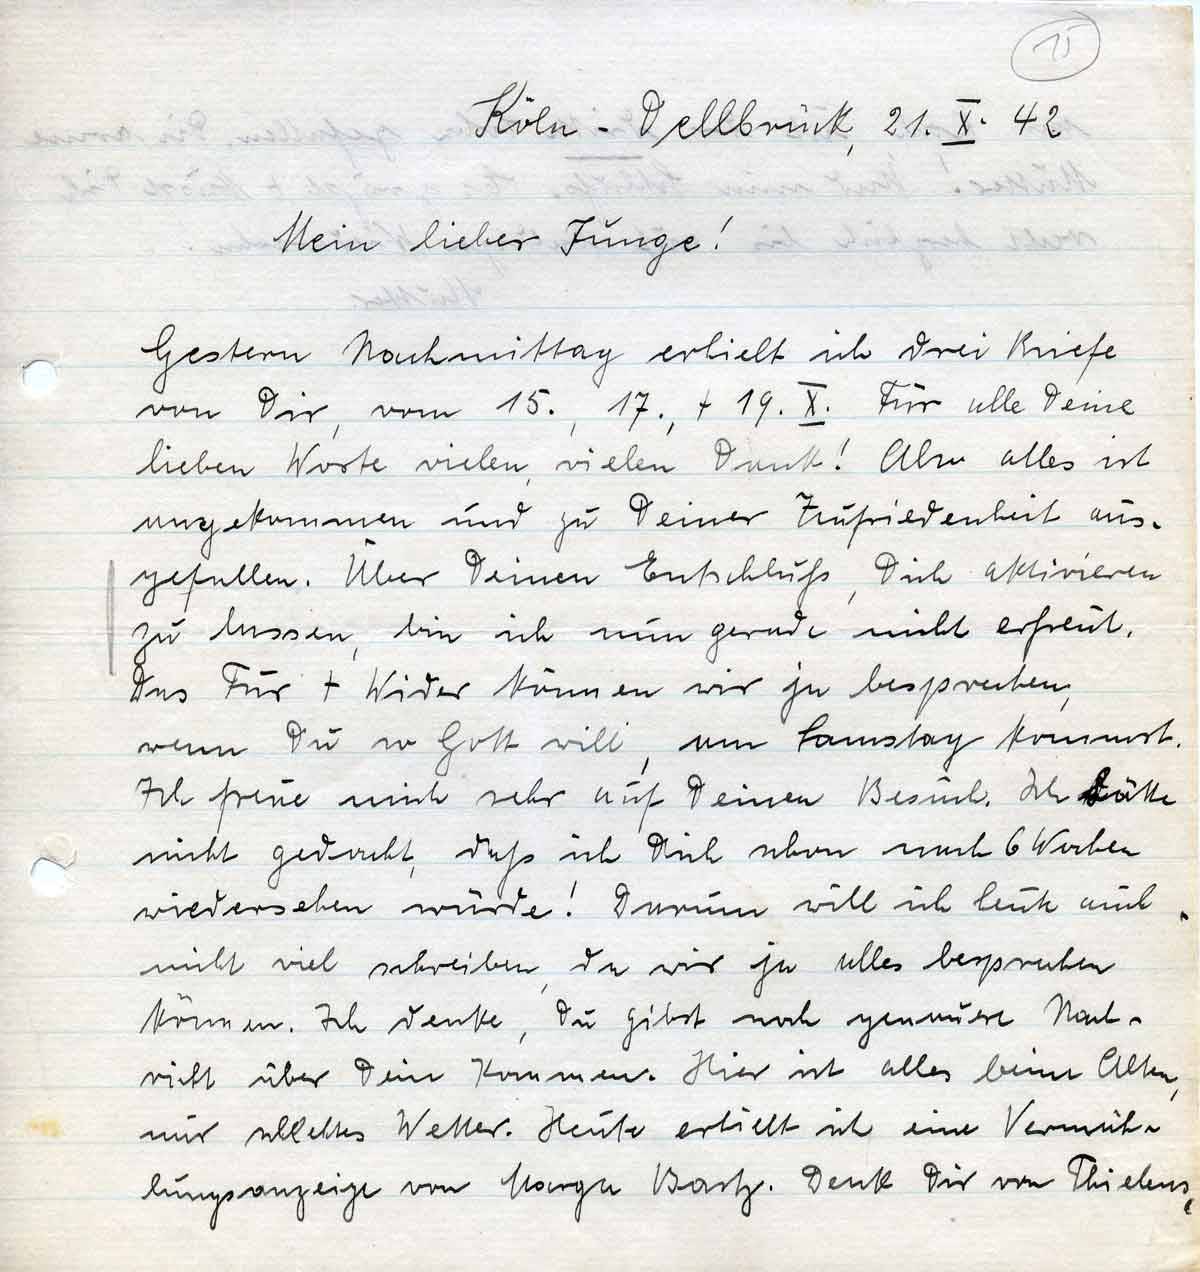 15
Köln - Dellbrück, 21. X. 42
Mein lieber Junge!
Gestern Nachmittag erhielt ich drei Briefe
von Dir, vom 15., 17., + 19. X. Für alle Deine
lieben Worte vielen, vielen Dank! Also alles ist
angekommen und zu Deiner Zufriedenheit aus-
gefallen. Über Deinen Entschluß, Dich aktivieren
zu lassen, bin ich nun gerade nicht erfreut.
Das Für + Wider können wir ja besprechen,
wenn Du so Gott will, am Samstag kommst.
Ich freue mich sehr auf Deinen Besuch. Ich hätte
nicht gedacht, daß ich Dich schon nach 6 Wochen
wiedersehen würde! Darum will ich heute auch
nicht viel schreiben, da wir ja alles besprechen
können. Ich denke, Du gibst noch genauere Nach-
richt über Dein Kommen. Hier ist alles beim Alten,
nur schlechtes Wetter. Heute erhielt ich eine Vermäh-
lungsanzeige von Marga Bartz. Denk Dir von Thielens,